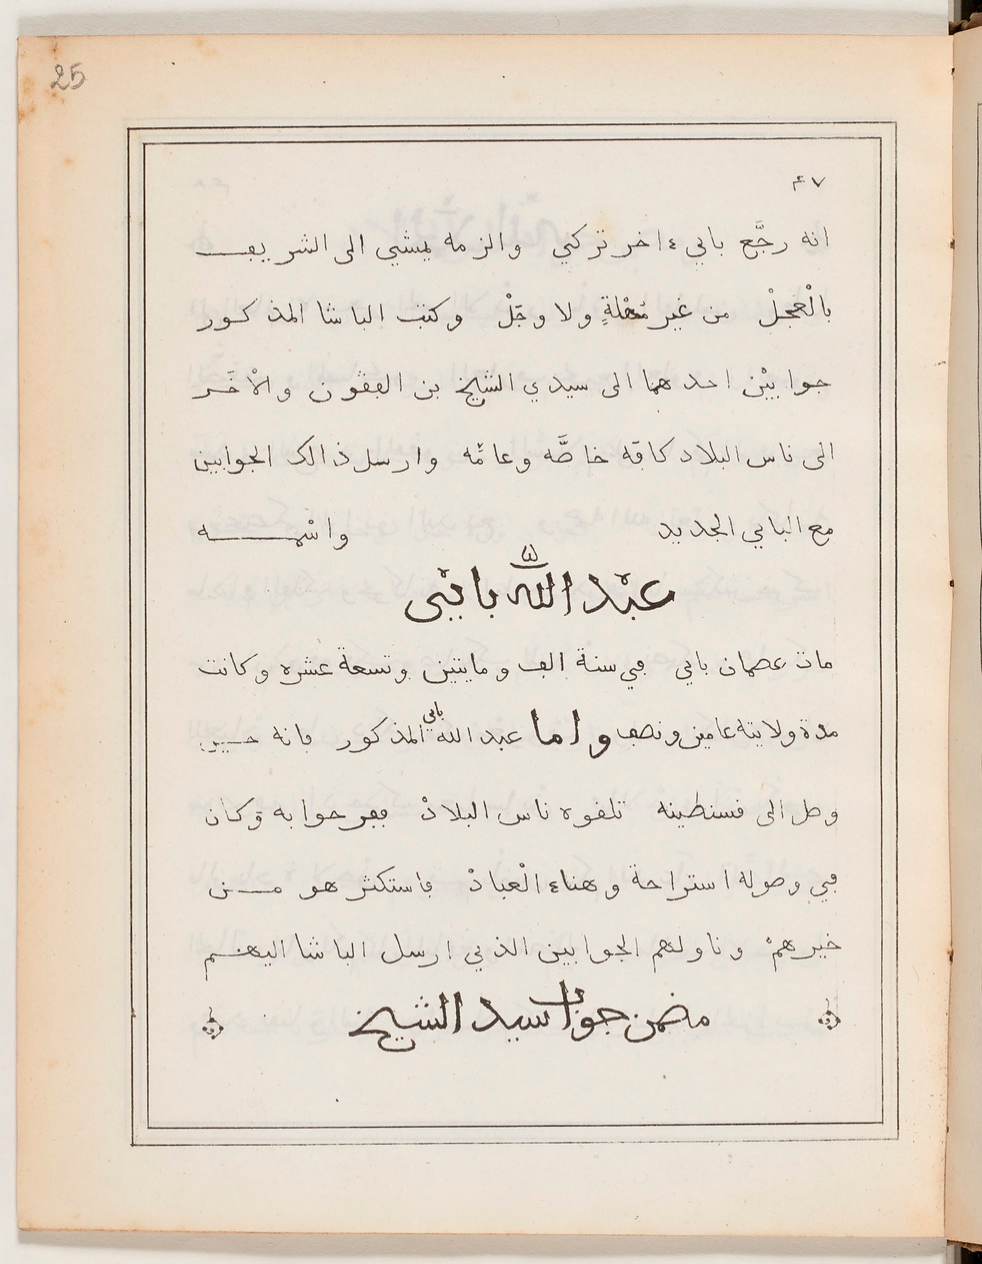 25
٤٧
انه رجَّع باي ءاخر تركي والزمه يمشي الى الشريف
بالْعجلْ من غير مُهْلةٍ ولا وجَلْ وكتب الباشا المذكور
جوابيْن احدهما الى سيدي الشيخ بن الفقون والاْخَر
الى ناس البلاد كافه خاصَّه وعامّه وارسل ذالك الجوابين
مع الباي الجديد واسْمه
عبْد الله باي
مات عصمان باي في سنة الف ومايتين وتسعة عشره وكانت
مدة ولايته عامين ونصف واما عبد الله باي المذكور فانه حين
وصل الى قسنطينه تلقوه ناس البلادْ ففرحوا به وكان
في وصوله استراحة وهناء الْعبادْ فاستكثر هو من
خيرهمْ وناولهم الجوابين الذي ارسل الباشا اليهم
مضمن جواب سيد الشيخ